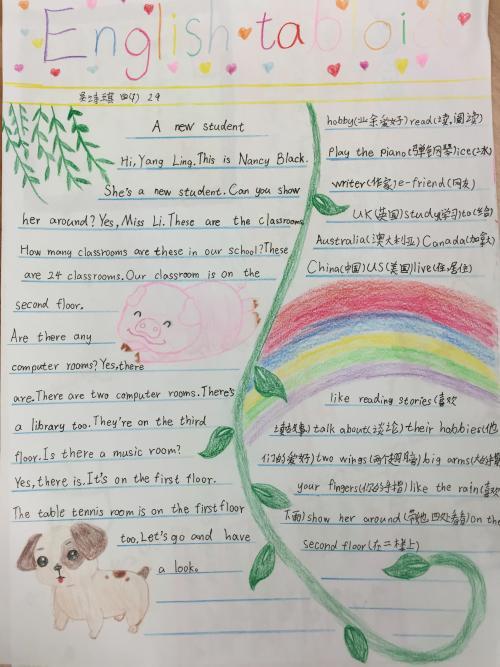 English tabloid
四(1) 29
A new student
Hi, Yang Ling. This is Nancy Black.
She's a new student. Can you show
her around? Yes, Miss Li. These are the classrooms
How many classrooms are these in our school? These
are 24 classrooms. Our classroom is on the
second floor.
Are there any
computer rooms? Yes, there
are. There are two computer rooms. There's
a library too. They're on the third
floor. Is there a music room?
Yes, there is. It's on the first floor.
The table tennis room is on the first floor
too. Let's go and have
a look.
hobby(业余爱好) read(读,阅读)
Play the piano(弹钢琴) ice(冰)
writer(作家) e-friend(网友)
UK(英国) study(学习) to
Australia(澳大利亚) Canada(加拿
China(中国) US(美国) live(住,居住)
like reading stories(喜欢
读故事) talk about(谈论) their hobbies(他
们的爱好) two wings(两个翅膀) big arms(大的手臂
your fingers(你的手指) like the rain(喜欢
下雨) show her around(带她四处看看) on the
second floor(在二楼上)